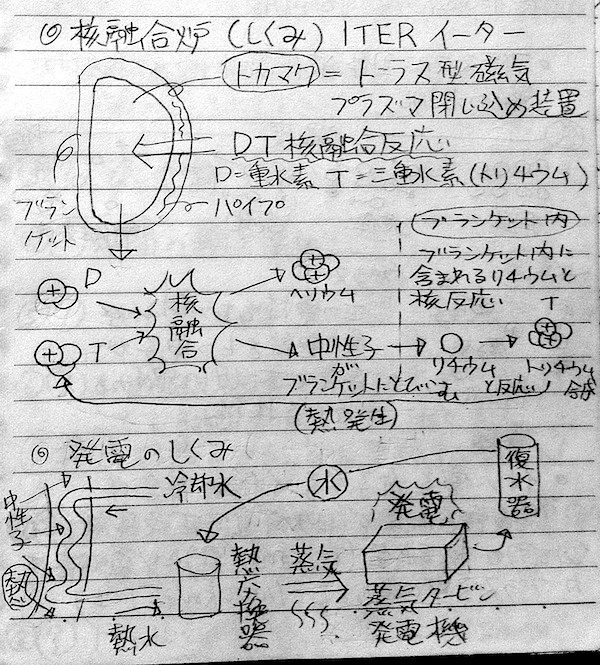 ◎ 核融合炉 (しくみ) ITER イーター
トカマク = トーラス型磁気
プラズマ閉じ込め装置
DT核融合反応
D=重水素 T=三重水素(トリチウム)
ブラン
ケット
パイプ
ブランケット内
ブランケット内に
含まれるリチウムと
核反応
D
T
核融合
ヘリウム
中性子
が
ブランケットにとびこむ
リチウム
と反応
T
トリチウム
合成
(熱発生)
◎ 発電のしくみ
中性子
熱
冷却水
熱水
水
熱交換器
蒸気
発電
蒸気タービン
発電機
復水器